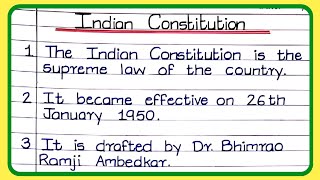 Indian Constitution
1. The Indian Constitution is the
supreme law of the country.
2 It became effective on 26th
January 1950.
3 It is drafted by Dr. Bhimrao
Ramji Ambedkar.